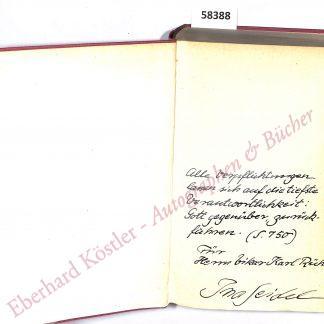 58388
Alle Verpflichtungen
lassen sich auf die tiefste
Verantwortlichkeit:
Gott gegenüber, zurück-
führen. (S. 750)
Für
Herrn Karl
Ina Seidel
Eberhard Köstler - Autographen & Bücher